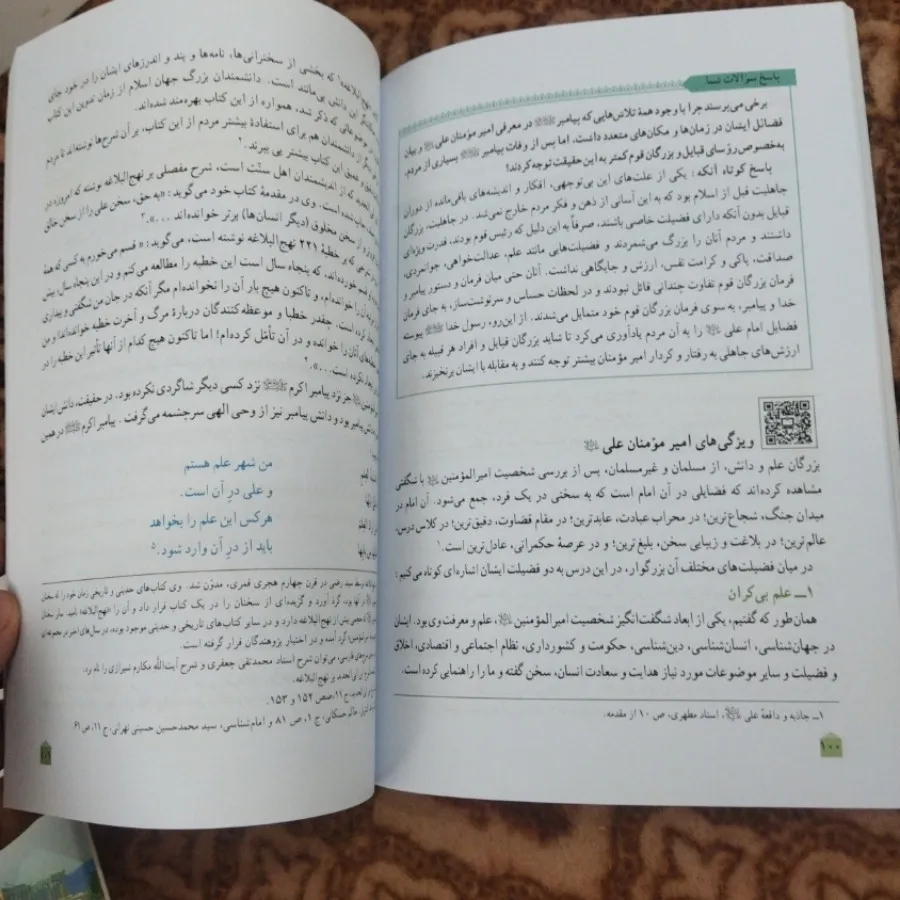 پاسخ سوالات شما
برخی می‌پرسند چرا با وجود همهٔ تلاش‌هایی که پیامبر ﷺ در معرفی امیر مؤمنان علی و بیان
فضائل ایشان در زمان‌ها و مکان‌های متعدد داشت، اما پس از وفات پیامبر ﷺ بسیاری از مردم،
به‌خصوص رؤسای قبایل و بزرگان قوم کمتر به این حقیقت توجه کردند؟
پاسخ کوتاه آنکه: یکی از علت‌های این بی‌توجهی، افکار و اندیشه‌های باقی‌مانده از دوران
جاهلیت قبل از اسلام بود که به این آسانی از ذهن و فکر مردم خارج نمی‌شد. در جاهلیت، بزرگان
قبایل بدون آنکه دارای فضیلت خاصی باشند، صرفاً به این دلیل که رئیس قوم بودند، قدرت ویژه‌ای
داشتند و مردم آنان را بزرگ می‌شمردند و فضیلت‌هایی مانند علم، عدالت‌خواهی، جوانمردی،
صداقت، پاکی و کرامت نفس، ارزش و جایگاهی نداشت. آنان حتی میان فرمان و دستور پیامبر و
فرمان بزرگان قوم تفاوت چندانی قائل نبودند و در لحظات حساس و سرنوشت‌ساز، به جای فرمان
خدا و پیامبر، به سوی فرمان بزرگان قوم خود متمایل می‌شدند. از این‌رو، رسول خدا ﷺ پیوسته
فضایل امام علی را به آن مردم یادآوری می‌کرد تا شاید بزرگان قبایل و افراد هر قبیله به جای
ارزش‌های جاهلی به رفتار و کردار امیر مؤمنان بیشتر توجه کنند و به مقابله با ایشان برنخیزند.
ویژگی‌های امیر مؤمنان علی
بزرگان علم و دانش، از مسلمان و غیرمسلمان، پس از بررسی شخصیت امیرالمؤمنین با شگفتی
مشاهده کرده‌اند که فضایلی در آن امام است که به سختی در یک فرد، جمع می‌شود. آن امام در
میدان جنگ، شجاع‌ترین؛ در محراب عبادت، عابدترین؛ در مقام قضاوت، دقیق‌ترین؛ در کلاس درس،
عالم‌ترین؛ در بلاغت و زیبایی سخن، بلیغ‌ترین؛ و در عرصهٔ حکمرانی، عادل‌ترین است.۱
در میان فضیلت‌های مختلف آن بزرگوار، در این درس به دو فضیلت ایشان اشاره‌ای کوتاه می‌کنیم:
۱ــ علم بی‌کران
همان‌طور که گفتیم، یکی از ابعاد شگفت‌انگیز شخصیت امیرالمؤمنین، علم و معرفت وی بود. ایشان
در جهان‌شناسی، انسان‌شناسی، دین‌شناسی، حکومت و کشورداری، نظام اجتماعی و اقتصادی، اخلاق
و فضیلت و سایر موضوعات مورد نیاز هدایت و سعادت انسان، سخن گفته و ما را راهنمایی کرده است.
۱ــ جاذبه و دافعهٔ علی، استاد مطهری، ص ۱۰ از مقدمه.
۱۰۰
نهج‌البلاغه۱ که بخشی از سخنرانی‌ها، نامه‌ها و پند و اندرزهای ایشان را در خود جای
این دانش بی‌مانند است. دانشمندان بزرگ جهان اسلام از زمان تدوین این کتاب
عالی که ذکر شد، همواره از این کتاب بهره‌مند شده‌اند.
دیگر از دانشمندان هم برای استفادهٔ بیشتر مردم از این کتاب، بر آن شرح‌ها نوشته‌اند تا مردم
عمیق این کتاب بیشتر پی ببرند.۲
که از دانشمندان اهل سنّت است، شرح مفصلی بر نهج‌البلاغه نوشته که امروزه در
شده است. وی در مقدمهٔ کتاب خود می‌گوید: «به حق، سخن علی را از سخن خالق
و از سخن مخلوق (دیگر انسان‌ها) برتر خوانده‌اند ...».۳
که بر خطبهٔ ۲۲۱ نهج‌البلاغه نوشته است، می‌گوید: « قسم می‌خورم به کسی که همهٔ
قسم خورده‌اند، که پنجاه سال است این خطبه را مطالعه می‌کنم و در این پنجاه سال، بیش
آن را خوانده‌ام، و تاکنون هیچ بار آن را نخوانده‌ام مگر آنکه در جان من شگفتی و بیداری
کرده است. چقدر خطبا و موعظه‌کنندگان دربارهٔ مرگ و آخرت خطبه خوانده‌اند! و من
آنان را خوانده و در آن تأمّل کرده‌ام! اما تاکنون هیچ کدام از آنها تأثیر این خطبه را در
نکرده است...».۴
جز نزد پیامبر اکرم ﷺ نزد کسی دیگر شاگردی نکرده بود. در حقیقت، دانش ایشان
دانش پیامبر بود و دانش پیامبر نیز از وحی الهی سرچشمه می‌گرفت. پیامبر اکرم ﷺ در همین
من شهر علم هستم
و علی درِ آن است.
هرکس این علم را بخواهد
باید از درِ آن وارد شود.۵
توسط سید رضی در قرن چهارم هجری قمری، مدوّن شد. وی کتاب‌های حدیثی و تاریخی زمان خود را که سخنان
در آنها بود، گرد آورد و گزیده‌ای از سخنان را در یک کتاب قرار داد و آن را «نهج‌البلاغه» نامید. سایر سخنان
از نهج‌البلاغه دارد و در سایر کتاب‌های تاریخی و حدیثی موجود بوده، در سال‌های اخیر در مجموعه‌ای
گرد آمده و در اختیار پژوهشگران قرار گرفته است.
فارسی، می‌توان شرح استاد محمدتقی جعفری و شرح آیت‌الله مکارم شیرازی را نام برد.
ابن‌ابی‌الحدید بر نهج البلاغه.
ج ۱۱، صص ۱۵۲ و ۱۵۳.
حاکم حسکانی، ج ۱، ص ۸۱ و امام‌شناسی، سید محمدحسین حسینی تهرانی، ج ۱۱، ص ۶۱